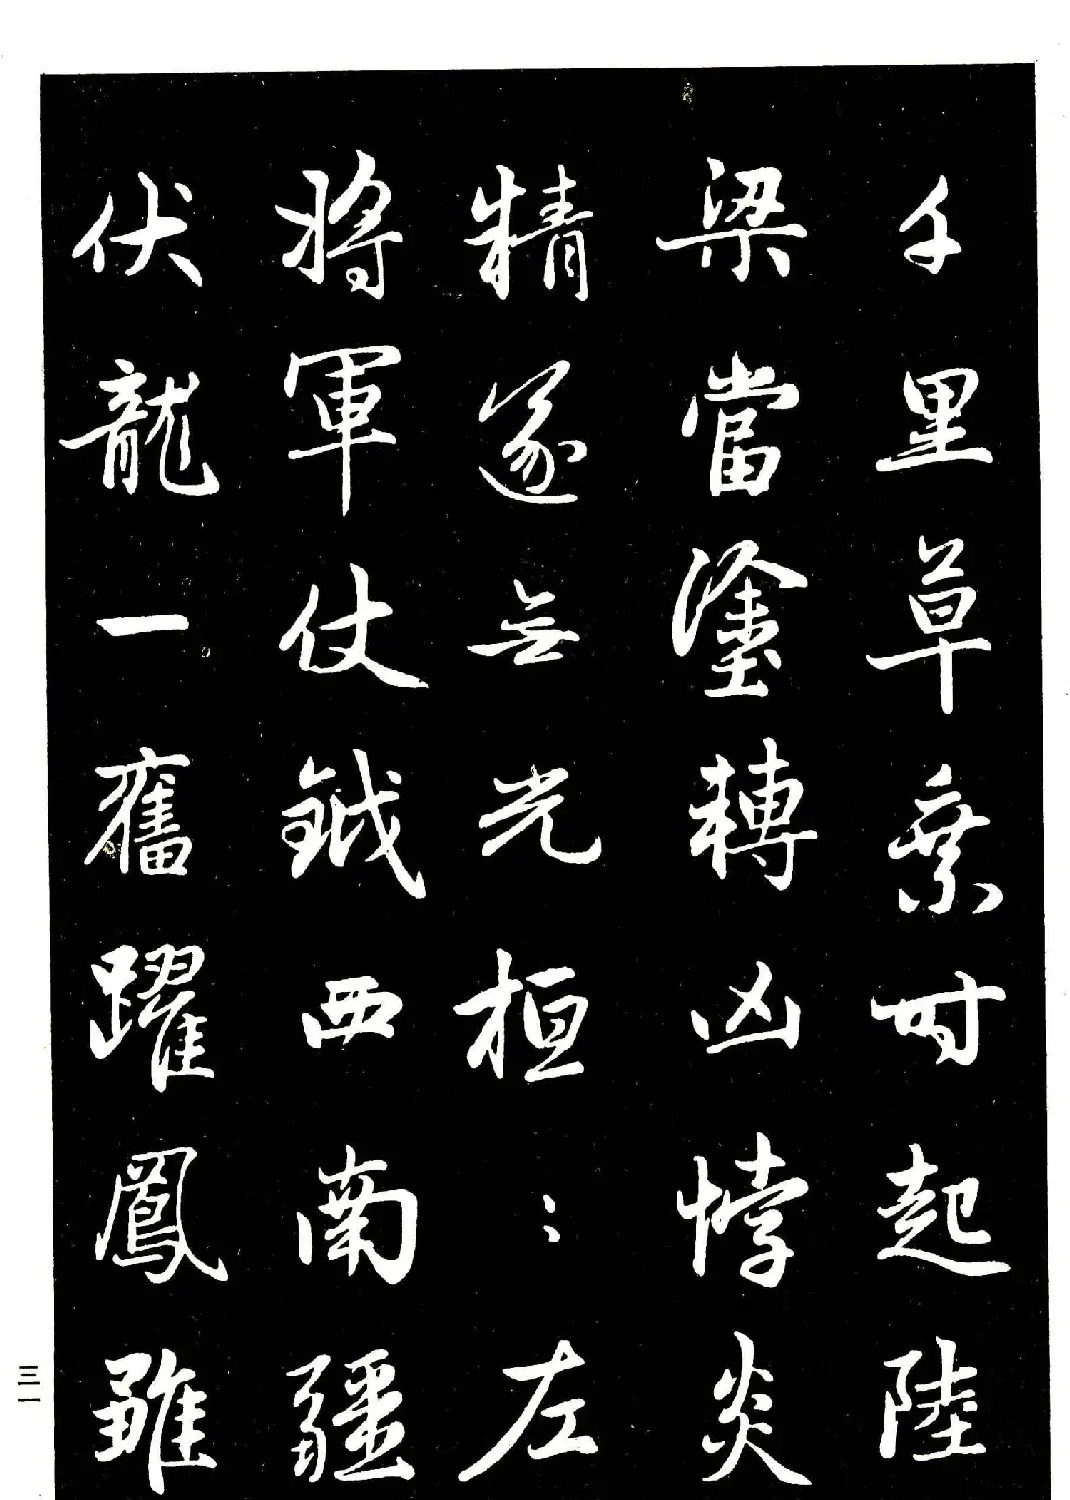 千里草乗时起陸
梁當塗轉凶悖炎
精遂无光桓〻左
將軍仗鉞西南疆
伏龍一奮躍鳳雖
三一